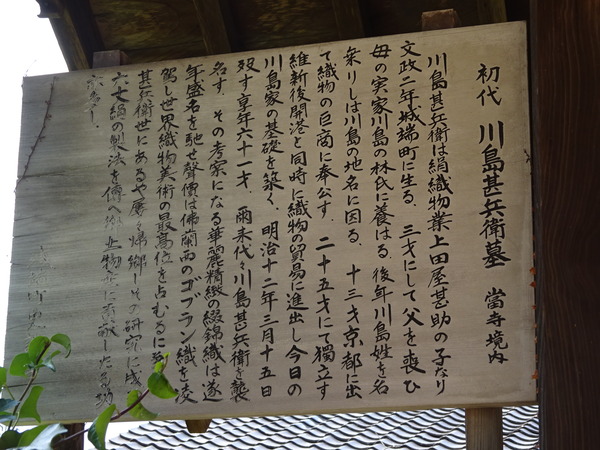 初代 川島甚兵衛墓 當寺境内
川島甚兵衛は絹織物業上田屋甚助の子なり
文政二年城端町に生る．三才にして父を喪ひ
母の実家川島の林氏に養はる．後年川島姓を名
乗りしは川島の地名に因る．十三才京都に出
て織物の巨商に奉公す．二十五才にて獨立す
維新後開港と同時に織物の貿易に進出し今日の
川島家の基礎を築く．明治十二年三月十五日
歿す享年六十一才．爾来代々川島甚兵衛を襲
名す．その考案になる華麗精緻の綴錦織は遂
年盛名を馳せ聲價は佛蘭西のゴブラン織を凌
駕し世界織物美術の最高位を占むるに至
甚兵衛世にあるや屡々帰郷しその研究に成
の製法を傳へ